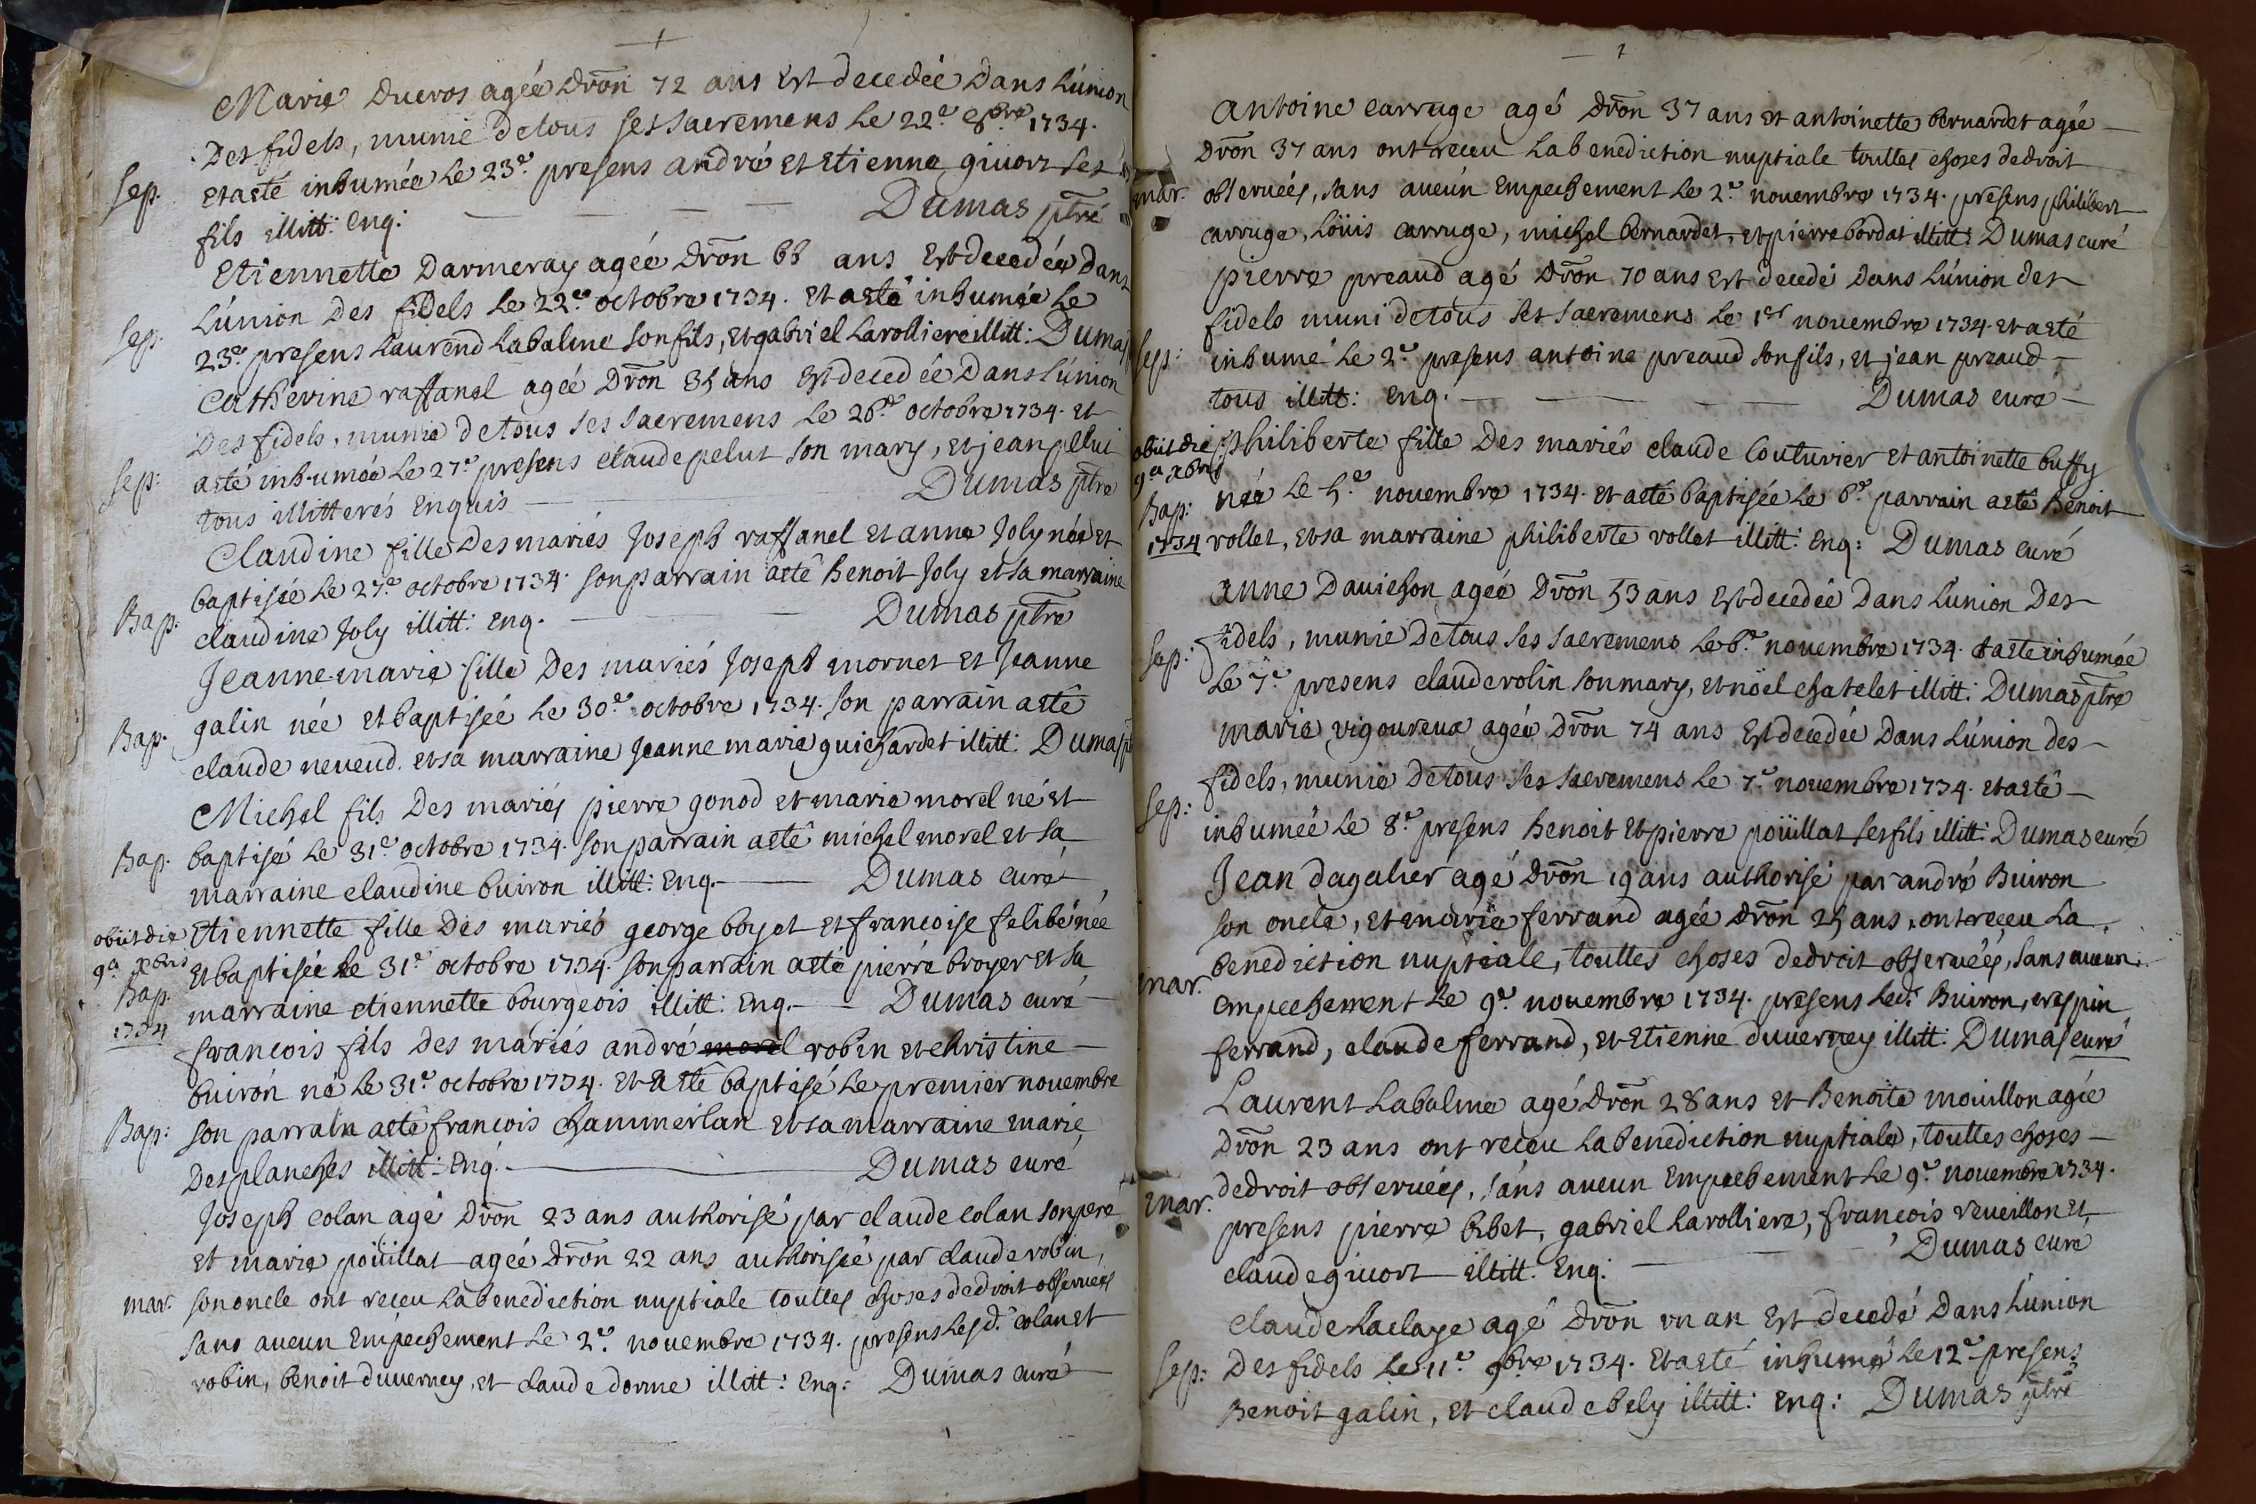 Marie Ducros agée dron 72 ans Est decedée Dans L'union
Des fidels, munie de tous ses sacremens Le 22e 8bre 1734.
Sep. Et a eté inhumée Le 23e presens andré Et Etienne givort ses
fils illitt: Enq: Dumas ptre
Etiennette Darmeray agée dron 66 ans Est decedée Dans
L'union Des fidels Le 22e octobre 1734. Et a eté inhumée Le
Sep: 23e presens Laurend Labalme son fils, Et gabriel Larolliere illitt: Dumas
Catherine raffanel agée Dron 35 ans Est decedée Dans L'union
Des fidels, munie de tous ses sacremens Le 26e octobre 1734. Et
Sep: a eté inhumée Le 27e presens claude pelut son mary, Et jean pelut
tous illitterés Enquis Dumas ptre
Claudine fille Des mariés Joseph raffanel Et anne Joly née Et
baptisée Le 27e octobre 1734. son parrain a eté Benoit Joly et sa marraine
Bap: claudine Joly illitt: Enq. Dumas ptre
Jeanne marie fille Des mariés Joseph mornet Et Jeanne
galin née Et baptisée Le 30e octobre 1734. son parrain a eté
Bap. claude neveud. et sa marraine Jeanne marie guichardet illitt: Dumas p
Michel fils Des mariés pierre gonod et marie morel né Et
Bap. baptisé Le 31e octobre 1734. son parrain a eté michel morel et sa
marraine claudine buiron illitt: Enq. Dumas curé
obiit die Etiennette fille Des mariés george boyet et francoise felibé née
9a xbris Et baptisée Le 31e octobre 1734. son parrain a eté pierre broyer Et sa
Bap. 1734 marraine etiennette bourgeois illitt: Enq. Dumas curé
francois fils Des mariés andré morel robin et christine
buiron né Le 31e octobre 1734. Et a eté baptisé Le premier novembre
Bap: son parrain a eté francois chammerlan Et sa marraine marie
Desplanches illitt: Enq. Dumas curé
Joseph colan agé Dron 23 ans authorisé par claude colan son pere
Et marie poüillat agée Dron 22 ans authorisée par claude robin,
mar. son oncle ont receu La benediction nuptiale touttes choses de droit observées
sans aucun Empechement Le 2e novembre 1734. presens Lesd. colan Et
robin, benoit duverney, et claude dorme illitt: Enq: Dumas curé
antoine carruge agé Dron 37 ans Et antoinette bernardet agée
Dron 37 ans ont receu La benediction nuptiale touttes choses de droit
mar. observées, sans aucun Empechement Le 2e novembre 1734. presens philibert
carruge, Loüis carruge, michel bernardet, et pierre bordat illitt: Dumas curé
pierre preaud agé Dron 70 ans Est decedé Dans L'union des
fidels muni de tous ses sacremens Le 1er novembre 1734. et a eté
Sep: inhumé Le 2e presens antoine preaud son fils, et jean preaud
tous illitt: Enq. Dumas curé
obiit die philiberte fille Des mariés claude Couturier et antoinette buffy
9a xbris née Le 5e novembre 1734. Et a eté baptisée Le 6e parrain a eté Benoit
Bap: 1734 vollet, et sa marraine philiberte vollet illitt: Enq: Dumas curé
anne Davichon agée Dron 53 ans Est decedée Dans L'union Des
Sep: fidels, munie De tous ses sacremens Le 6e novembre 1734. Et a eté inhumée
Le 7e presens claude rolin son mary, et noel chatelet illitt: Dumas ptre
marie vigoureux agée Dron 74 ans Est decedée Dans L'union des
fidels, munie De tous ses sacremens Le 7e novembre 1734. et a eté
Sep: inhumée Le 8e presens Benoit Et pierre poüillat ses fils illitt: Dumas curé
Jean dagalier agé Dron 19 ans authorisé par andré Buiron
son oncle, et marie ferrand agée Dron 25 ans, ont receu La
mar. benediction nuptiale, touttes choses de droit observées, sans aucun
empechement Le 9e novembre 1734. presens Led. Buiron, crespin
ferrand, claude ferrand, et Etienne duverney illitt: Dumas curé
Laurent Labalme agé Dron 28 ans et Benoite mouillon agée
Dron 23 ans ont receu La benediction nuptiale, touttes choses
mar. de droit observées, sans aucun Empechement Le 9e novembre 1734.
presens pierre bibet, gabriel Larolliere, francois reveillon et
claude givort illitt. Enq: Dumas curé
claude Laclaye agé Dron un an Est decedé Dans L'union
Sep: Des fidels Le 11e 9bre 1734. Et a eté inhumé Le 12e presens
Benoit galin, Et claude bely illitt: Enq: Dumas ptre